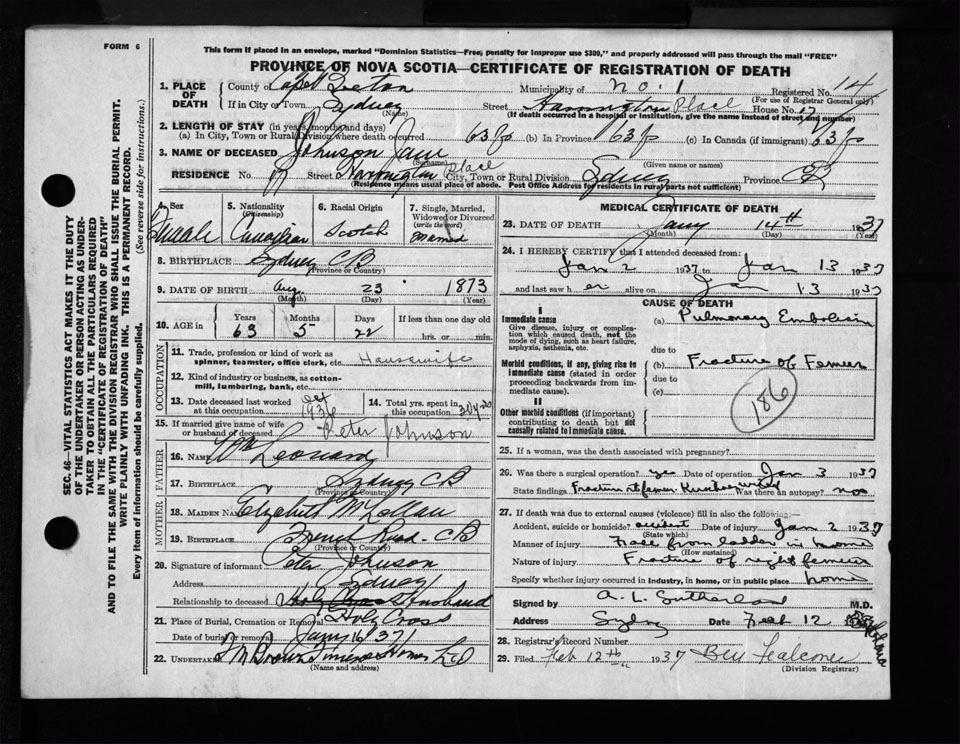 FORM 6
This form if placed in an envelope, marked "Dominion Statistics—Free, penalty for improper use $300," and properly addressed will pass through the mail "FREE"
PROVINCE OF NOVA SCOTIA—CERTIFICATE OF REGISTRATION OF DEATH
1. PLACE OF DEATH County of Cape Breton Municipality of No. 1 Registered No. 14
(For use of Registrar General only)
If in City or Town Sydney Street Harrington Place House No. 17
(Name) (If death occurred in a hospital or institution, give the name instead of street and number)
2. LENGTH OF STAY (in years, months and days)
(a) In City, Town or Rural Division where death occurred 63 (b) In Province 63 (c) In Canada (if immigrant) 63
3. NAME OF DECEASED Johnson Jane
(Surname) (Given name or names)
RESIDENCE No. 17 Street Harrington Place City, Town or Rural Division Sydney Province CB
(Residence means usual place of abode. Post Office Address for residents in rural parts not sufficient)
SEC. 46—VITAL STATISTICS ACT MAKES IT THE DUTY OF THE UNDERTAKER OR PERSON ACTING AS UNDERTAKER TO OBTAIN ALL THE PARTICULARS REQUIRED IN THE "CERTIFICATE OF REGISTRATION OF DEATH" AND TO FILE THE SAME WITH THE DIVISION REGISTRAR WHO SHALL ISSUE THE BURIAL PERMIT.
WRITE PLAINLY WITH UNFADING INK. THIS IS A PERMANENT RECORD.
Every item of information should be carefully supplied. (See reverse side for instructions.)
4. Sex Female
5. Nationality (Citizenship) Canadian
6. Racial Origin Scotch
7. Single, Married, Widowed or Divorced (write the word) Married
8. BIRTHPLACE Sydney CB
(Province or Country)
9. DATE OF BIRTH Aug 23 1873
(Month) (Day) (Year)
10. AGE in Years 63 Months 5 Days 22 If less than one day old hrs. or min.
OCCUPATION
11. Trade, profession or kind of work as spinner, teamster, office clerk, etc. Housewife
12. Kind of industry or business, as cotton-mill, lumbering, bank, etc.
13. Date deceased last worked at this occupation Oct 1936
14. Total yrs. spent in this occupation
15. If married give name of wife or husband of deceased Peter Johnson
FATHER
16. NAME Wm Leonard
17. BIRTHPLACE Sydney CB
(Province or Country)
MOTHER
18. MAIDEN NAME Elizabeth
19. BIRTHPLACE French Road CB
(Province or Country)
20. Signature of informant Peter Johnson
Address Sydney
Relationship to deceased Holy Cross Husband
21. Place of Burial, Cremation or Removal Holy Cross
Date of burial or removal Jany 16/37
22. UNDERTAKER Brown's Funeral Home Ltd
(Name and address)
MEDICAL CERTIFICATE OF DEATH
23. DATE OF DEATH Jany 14th 1937
(Month) (Day) (Year)
24. I HEREBY CERTIFY that I attended deceased from:
Jan 2 1937 to Jan 13 1937
and last saw her alive on Jan 13 1937
CAUSE OF DEATH
I
Immediate cause
Give disease, injury or complication which caused death, not the mode of dying, such as heart failure, asphyxia, asthenia, etc.
(a) Pulmonary Embolism
due to
Morbid conditions, if any, giving rise to immediate cause (stated in order proceeding backwards from immediate cause).
(b) Fracture of Femur
due to
(c)
186
II
Other morbid conditions (if important) contributing to death but not causally related to immediate cause.
25. If a woman, was the death associated with pregnancy?
26. Was there a surgical operation? yes Date of operation Jan 3 1937
State findings Fracture of femur Was there an autopsy? no
27. If death was due to external causes (violence) fill in also the following:
Accident, suicide or homicide? accident Date of injury Jan 2 1937
(State which)
Manner of injury Fall from ladder in home
(How sustained)
Nature of injury Fracture of right femur
Specify whether injury occurred in industry, in home, or in public place home
Signed by A. L. Sutherland M.D.
Address Sydney Date Feb 12
28. Registrar's Record Number
29. Filed Feb 12th 1937 Falconer
(Division Registrar)